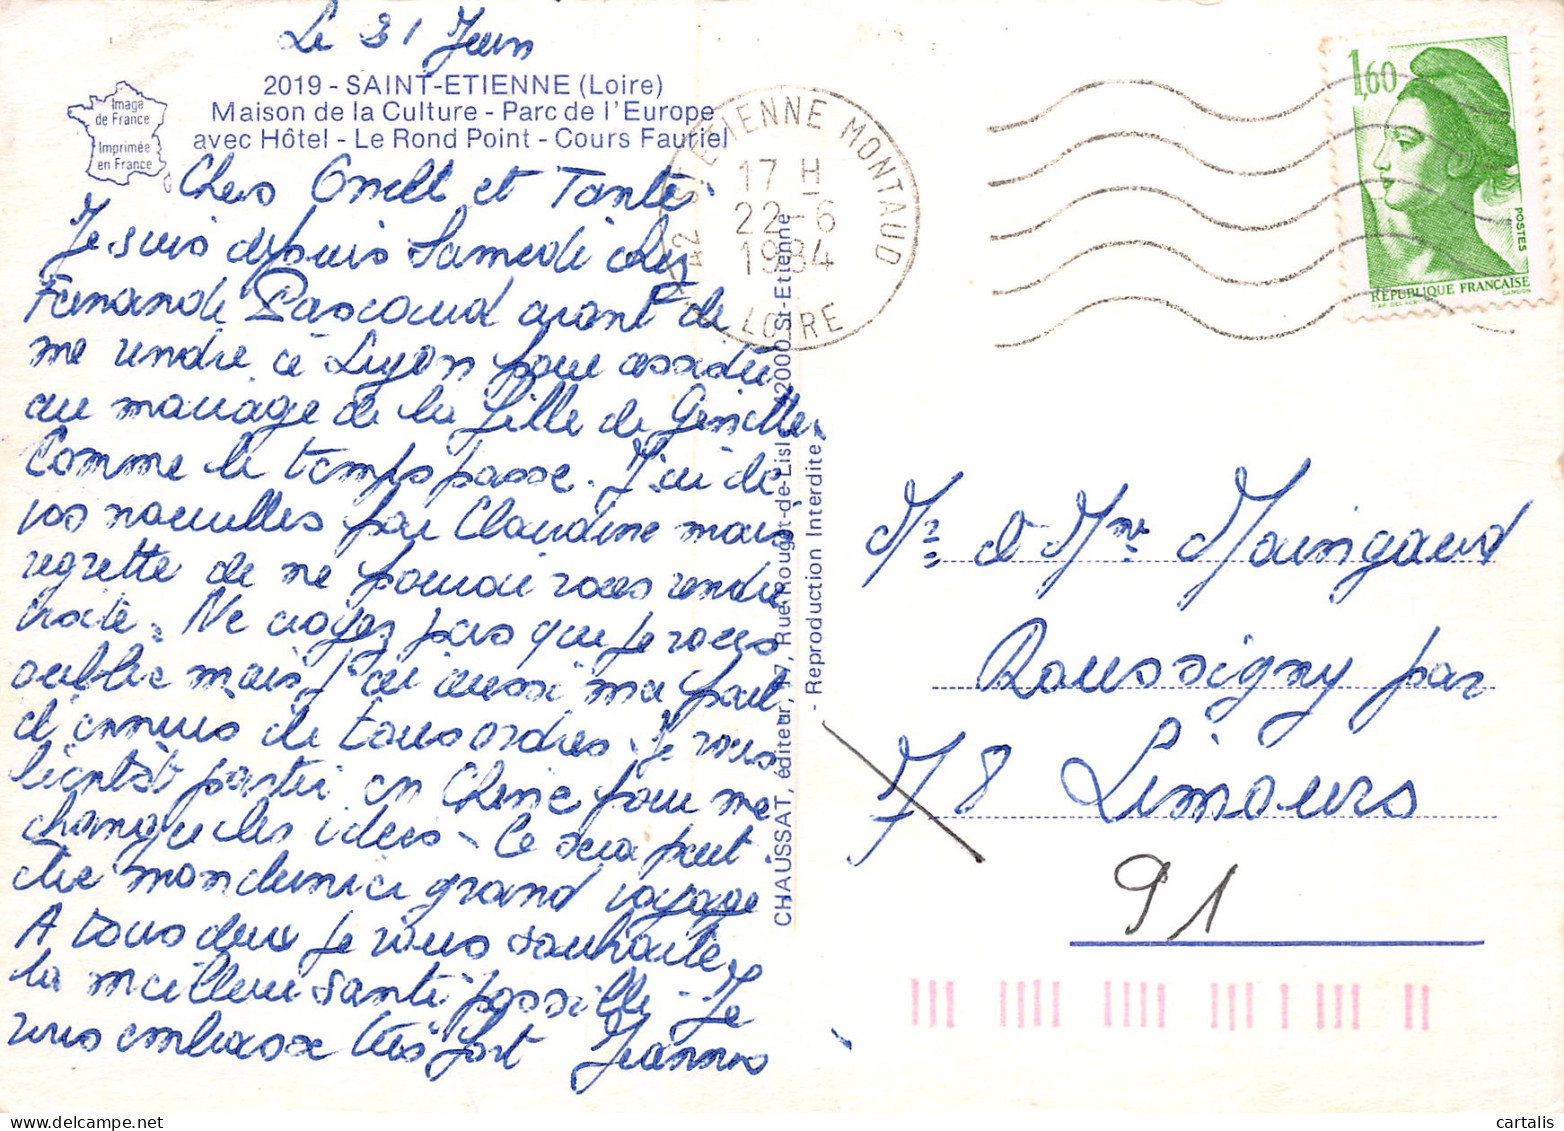 Le 21 Juin
2019 - SAINT-ETIENNE (Loire)
Maison de la Culture - Parc de l'Europe
avec Hôtel - Le Rond Point - Cours Fauriel
Image
de France
Imprimée
en France
Chers Oncle et Tante
Je suis depuis Samedi chez
Fernande Pascaud avant de
me rendre à Lyon pour assister
au mariage de la fille de Ginette.
Comme le temps passe. J'ai de
vos nouvelles par Claudine mais
regrette de ne pouvoir vous rendre
visite. Ne croyez pas que je vous
oublie mais j'ai aussi ma part
d'ennuis de tous ordres. Je vais
bientôt partir en Chine pour me
changer les idées. Ce sera peut
être mon dernier grand voyage
A tous deux je vous souhaite
la meilleure santé possible. Je
vous embrasse très fort Jeanne
42 ST ETIENNE MONTAUD
17 H
22-6
1984
LOIRE
1,60
POSTES
RÉPUBLIQUE FRANÇAISE
GANDON
CHAUSSAT, éditeur, 17, Rue Rouget-de-Lisle 42000 St-Etienne
- Reproduction Interdite -
Mr et Mme Maingaud
Roussigny par
78 Limours
91